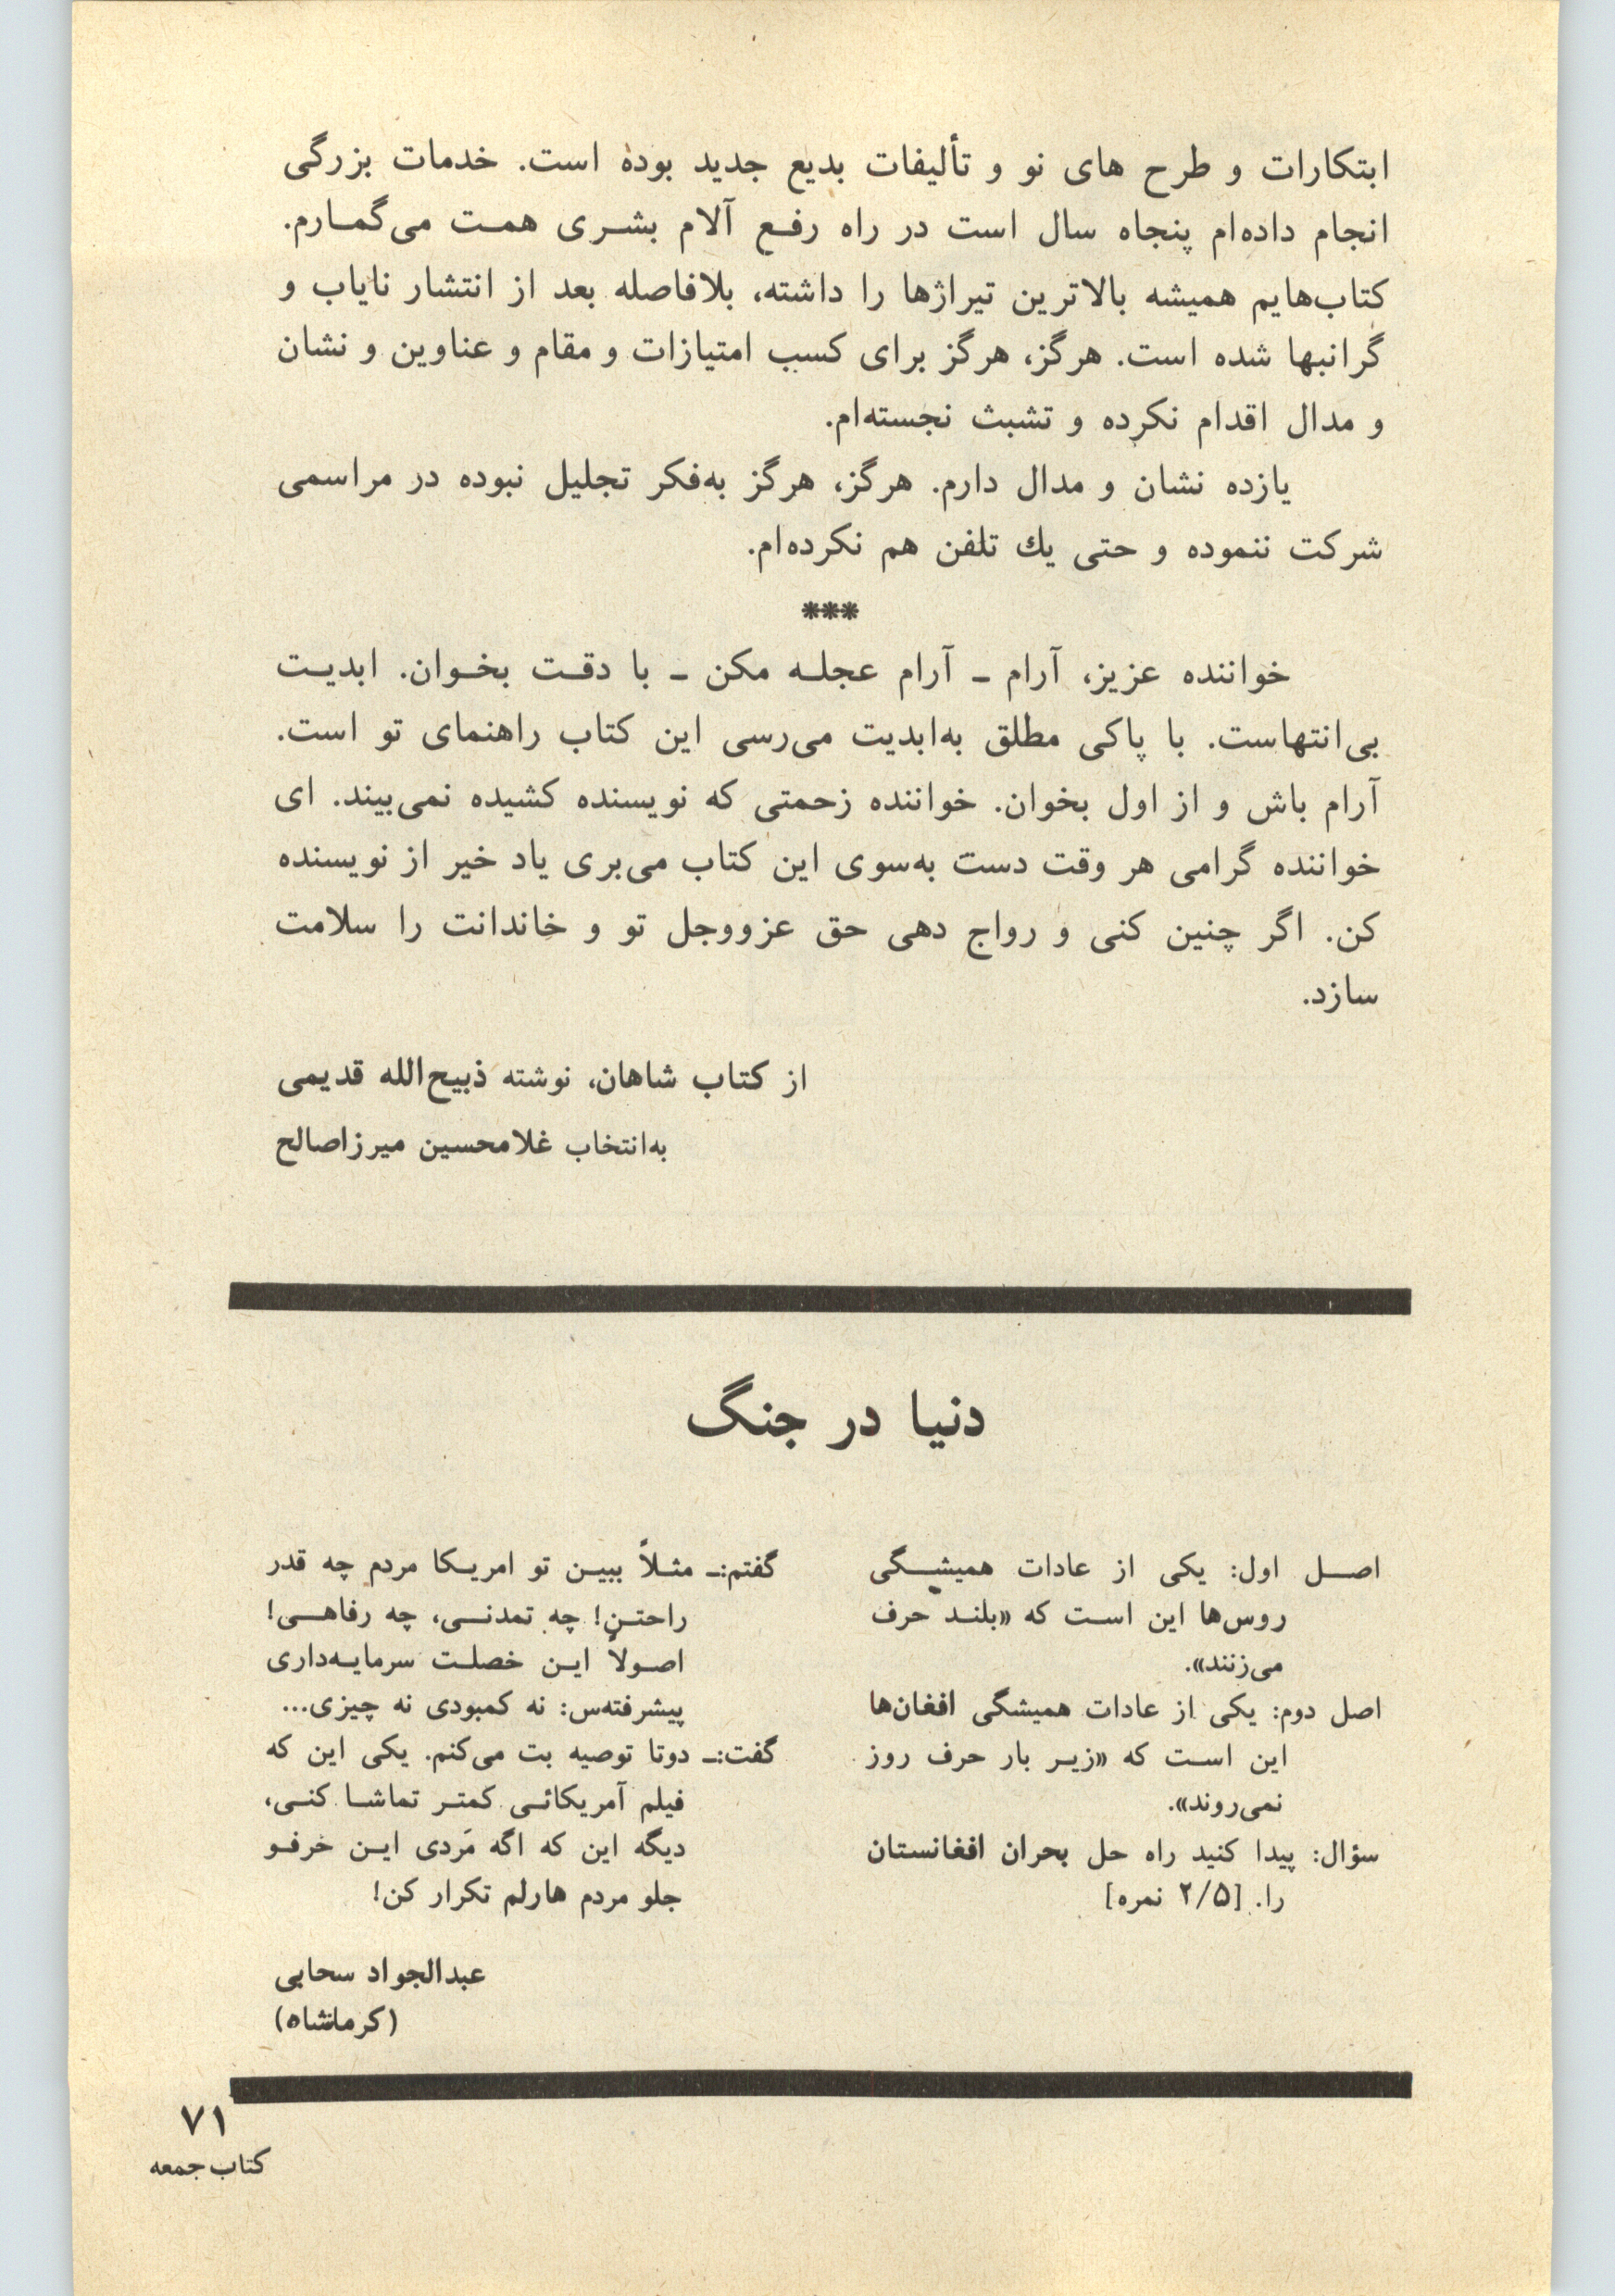 ابتکارات و طرح های نو و تألیفات بدیع جدید بوده است. خدمات بزرگی
انجام داده‌ام پنجاه سال است در راه رفـع آلام بشـری همـت می‌گمـارم.
کتاب‌هایم همیشه بالاترین تیراژها را داشته، بلافاصله بعد از انتشار نایاب و
گرانبها شده است. هرگز، هرگز برای کسب امتیازات و مقام و عناوین و نشان
و مدال اقدام نکرده و تشبث نجسته‌ام.
یازده نشان و مدال دارم. هرگز، هرگز به‌فکر تجلیل نبوده در مراسمی
شرکت ننموده و حتی یك تلفن هم نکرده‌ام.
***
خواننده عزیز، آرام ـ آرام عجلـه مکن ـ با دقـت بخـوان. ابدیـت
بی‌انتهاست. با پاکی مطلق به‌ابدیت می‌رسی این کتاب راهنمای تو است.
آرام باش و از اول بخوان. خواننده زحمتی که نویسنده کشیده نمی‌بیند. ای
خواننده گرامی هر وقت دست به‌سوی این کتاب می‌بری یاد خیر از نویسنده
کن. اگر چنین کنی و رواج دهی حق عزووجل تو و خاندانت را سلامت
سازد.
از کتاب شاهان، نوشته ذبیح‌الله قدیمی
به‌انتخاب غلامحسین میرزاصالح
دنیا در جنگ
اصـل اول: یکی از عادات همیشـگی
روس‌ها این اسـت که «بلنـد حرف
می‌زنند».
اصل دوم: یکی از عادات همیشگی افغان‌ها
این اسـت که «زیـر بار حرف روز
نمی‌روند».
سؤال: پیدا کنید راه حل بحران افغانستان
را. [۲/۵ نمره]
گفتم:ـ مثـلاً ببیـن تو امریـکا مردم چه قدر
راحتـن! چه تمدنـی، چه رفاهـی!
اصـولاً ایـن خصلـت سرمایـه‌داری
پیشرفته‌س: نه کمبودی نه چیزی...
گفت:ـ دوتا توصیه بت می‌کنم. یکی این که
فیلم آمریکائـی کمتـر تماشـا کنـی،
دیگه این که اگه مَردی ایـن حرفـو
جلو مردم هارلم تکرار کن!
عبدالجواد سحابی
(کرمانشاه)
۷۱
کتاب جمعه